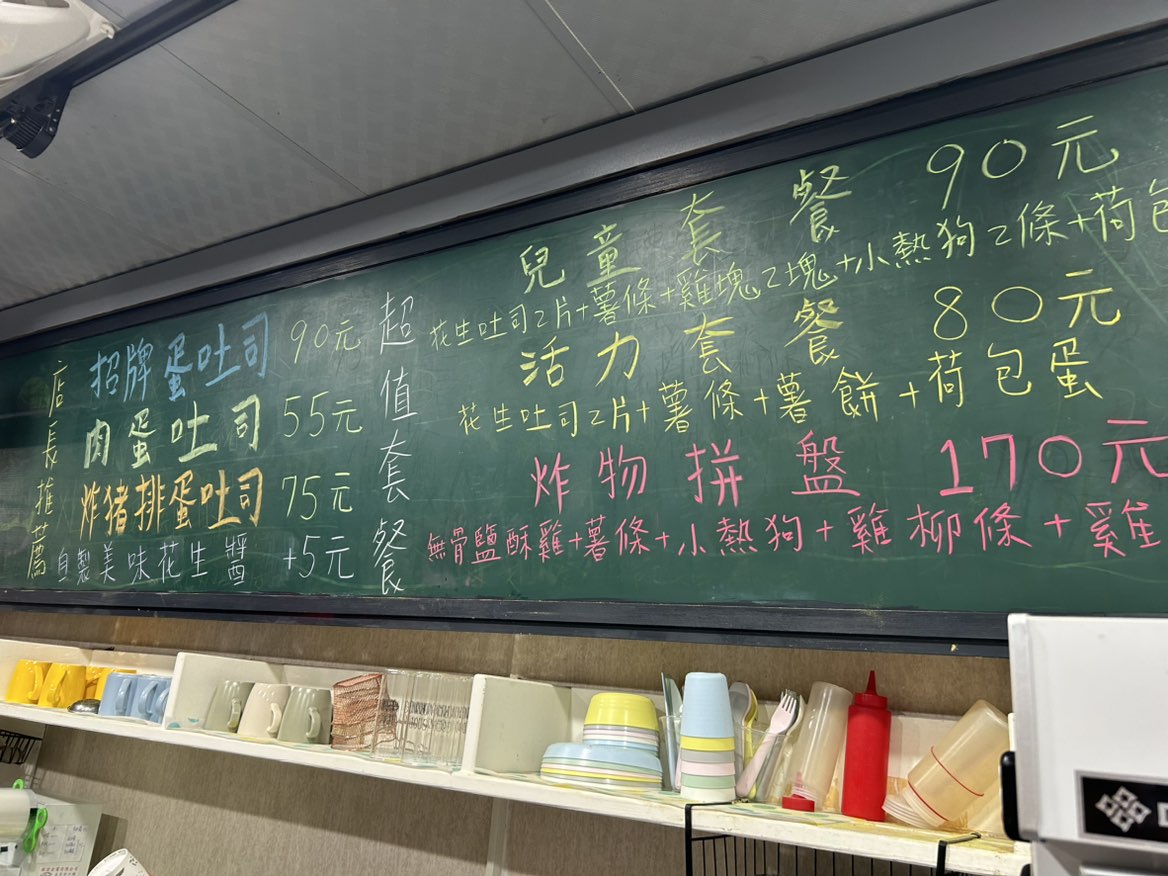 店長推薦
招牌蛋吐司 90元
肉蛋吐司 55元
炸猪排蛋吐司 75元
自製美味花生醬 +5元
超值套餐
兒童套餐 90元
花生吐司2片+薯條+雞塊2塊+小熱狗2條+荷包
活力套餐 80元
花生吐司2片+薯條+薯餅+荷包蛋
炸物拼盤 170元
無骨鹽酥雞+薯條+小熱狗+雞柳條+雞